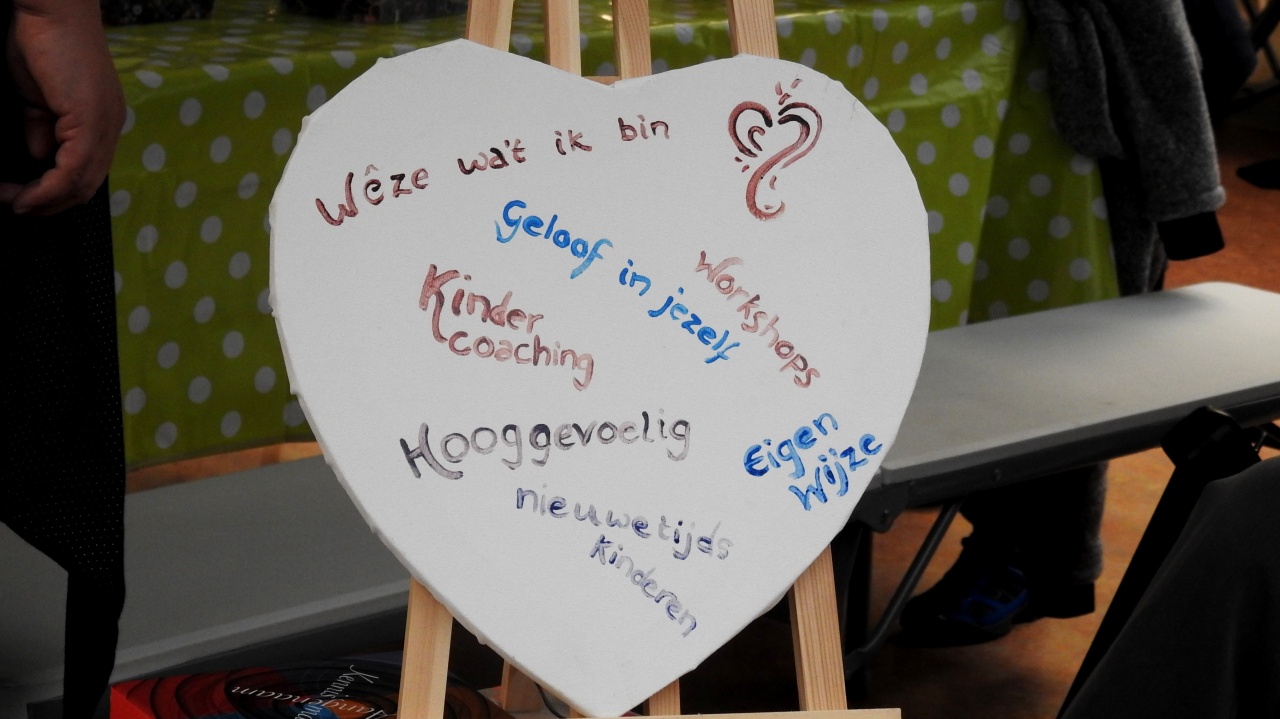 Wêze wa't ik bin
Geloof in jezelf
Workshops
Kinder
coaching
Hooggevoelig
Eigen
Wijze
nieuwetijds
Kinderen